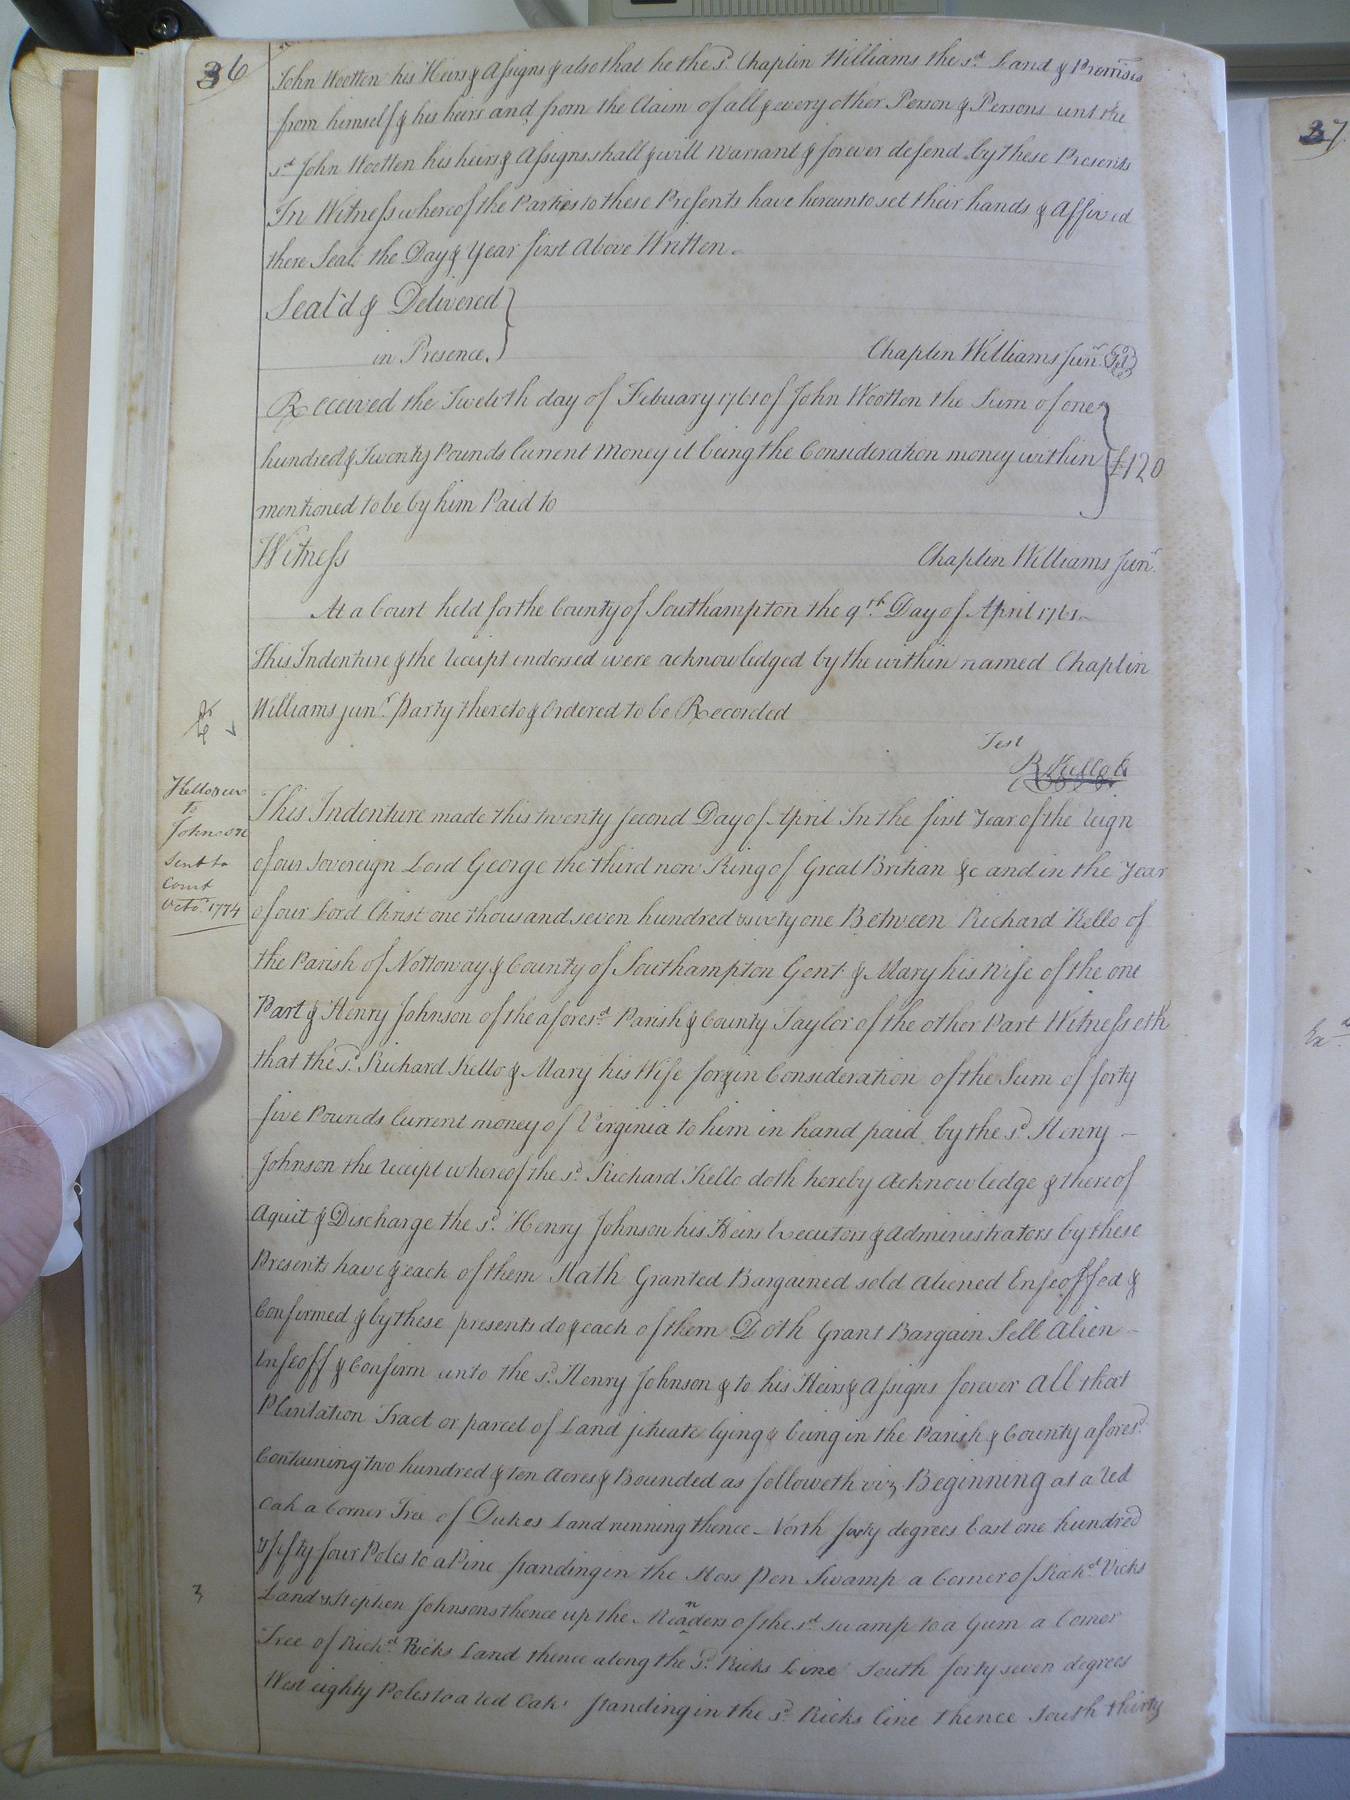 36
John Wootten his Heirs & Assigns & also that he the sd. Chaplin Williams the sd. Land & Premises
from himself & his heirs and from the Claim of all & every other Person & Persons unt the
sd. John Wootten his heirs & Assigns shall & will Warrant & forever defend by these Presents
In Witness whereof the Parties to these Presents have hereunto set their hands & Affixed
there Seal. the Day & Year first Above Written.
Seal'd & Delivered
in Presence.
Chaplin Williams Junr.
Received the Twelvth day of Febuary 1761 of John Wootten the Sum of one
hundred & Twenty Pounds Current Money it being the Consideration money within
£120
mentioned to be by him Paid to
Witness
Chaplin Williams Junr.
At a Court held for the County of Southampton the 9th. Day of April 1761.
This Indenture & the receipt endorsed were acknowledged by the within named Chaplin
Williams junr. Party thereto & Ordered to be Recorded
Test
R Kello
Kello &c
to
Johnson
Sent to
Court
Octo. 1774
This Indenture made this twenty second Day of April In the first Year of the reign
of our Sovereign Lord George the third now King of Great Britian &c and in the Year
of our Lord Christ one thousand seven hundred & sixty one Between Richard Kello of
the Parish of Nottoway & County of Southampton Gent & Mary his Wife of the one
Part & Henry Johnson of the aforesd. Parish & County Taylor of the other Part Witnesseth
that the sd. Richard Kello & Mary his Wife for & in Consideration of the Sum of forty
five Pounds Current money of Virginia to him in hand paid by the sd. Henry
Johnson the receipt whereof the sd. Richard Kello doth hereby Acknowledge & thereof
Aquit & Discharge the sd. Henry Johnson his Heirs Executors & Administrators by these
Presents have & each of them Hath Granted Bargained sold Aliened Enfeoffed &
Confirmed & by these presents do & each of them Doth Grant Bargain Sell Alien
Enfeoff & Confirm unto the sd. Henry Johnson & to his Heirs & Assigns forever All that
Plantation Tract or parcel of Land situate lying & being in the Parish & County aforesd.
Containing two hundred & ten Acres & Bounded as followeth viz Beginning at a red
Oak a Corner Tree of Dukes Land running thence North forty degrees East one hundred
& fifty four Poles to a Pine standing in the Hors pen Swamp a Corner of Richd. Vicks
3
Land & Stephen Johnsons thence up the Meanders of the sd. swamp to a Gum a Corner
Tree of Richd. Ricks Land thence along the sd. Ricks Line South forty seven degrees
West eighty Poles to a red Oak standing in the sd. Ricks line thence South thirty
37